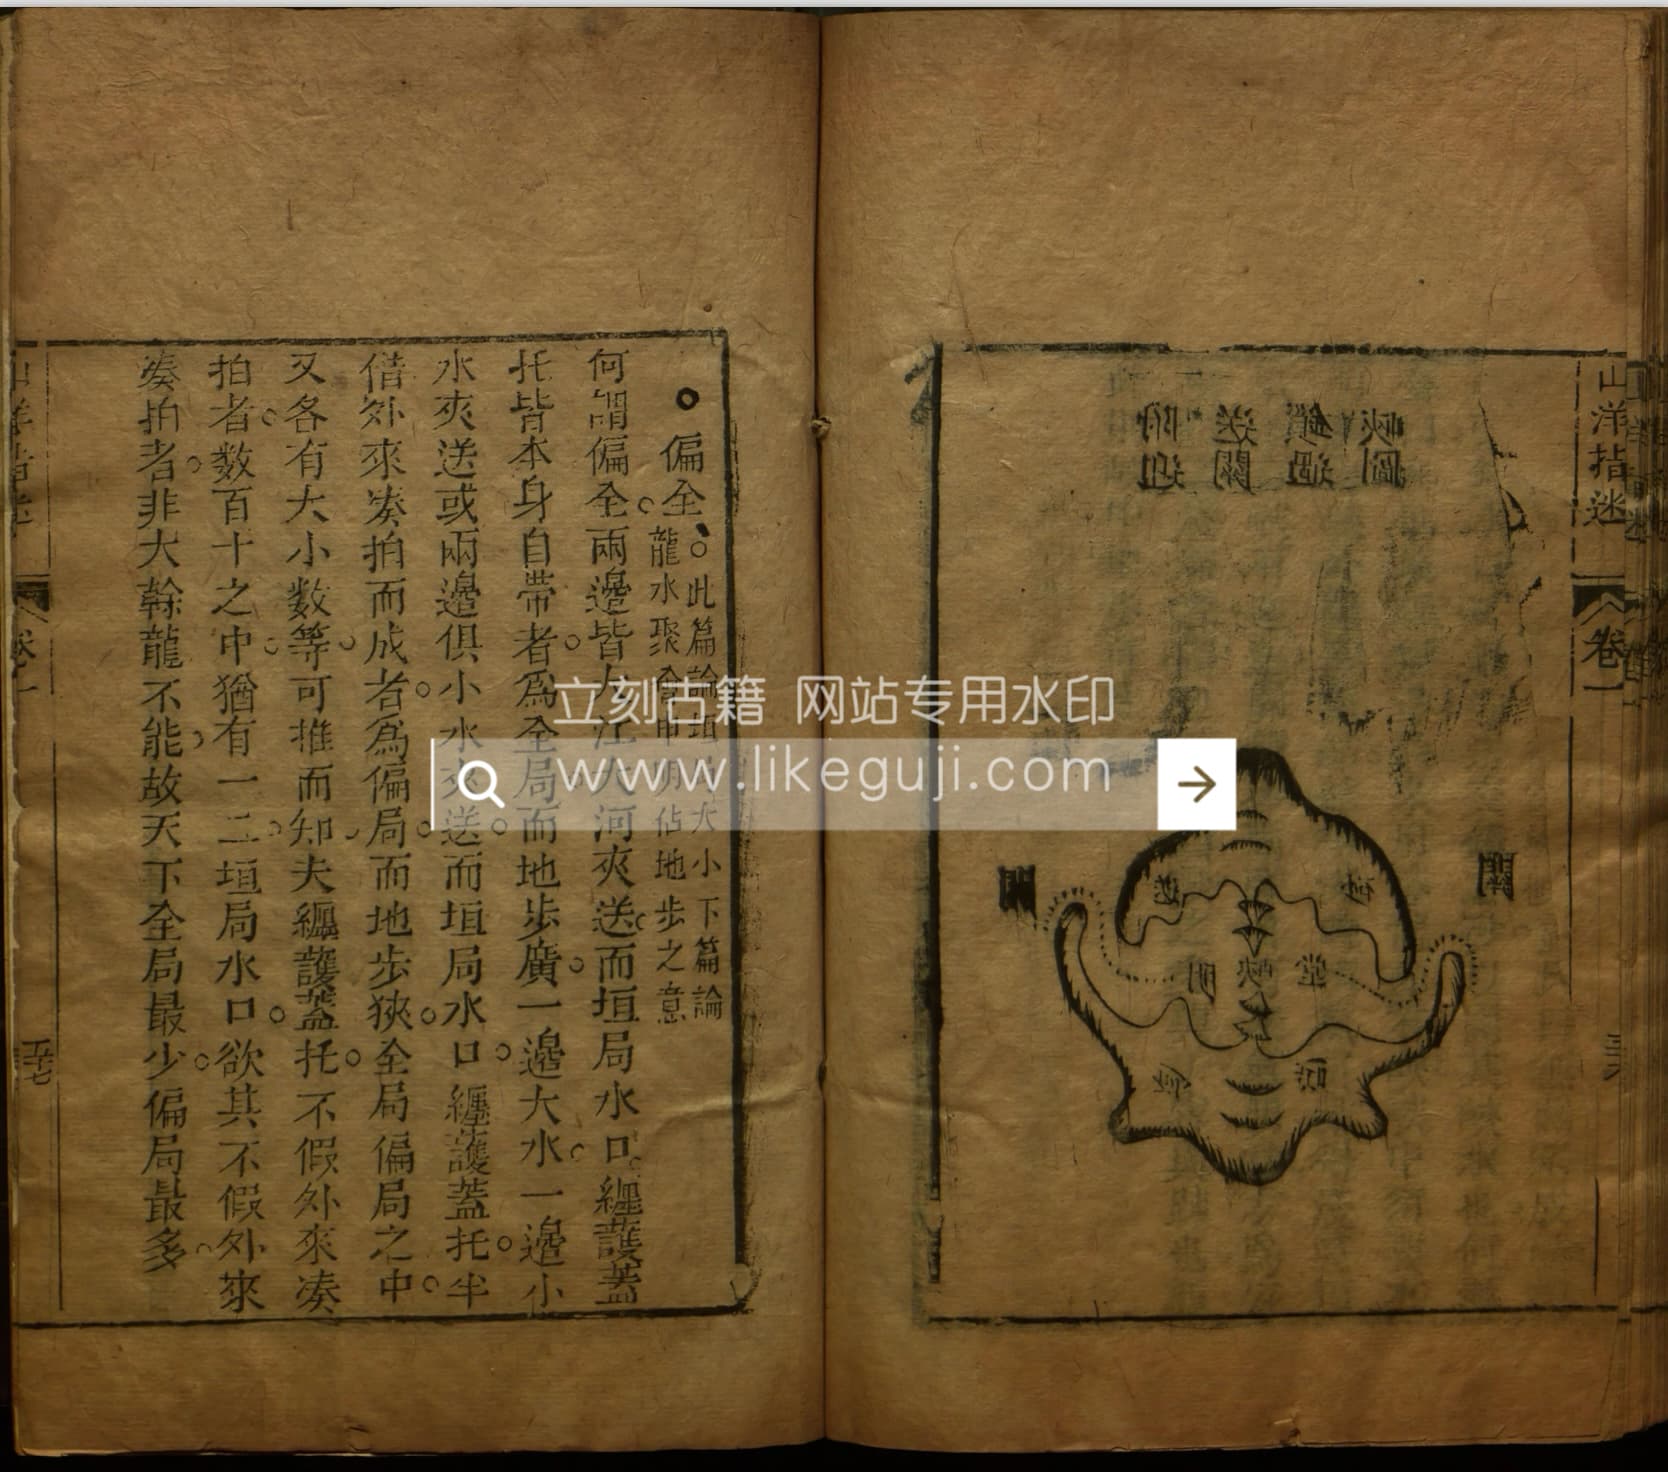 山洋指迷
卷一
峽圖
鎖過
送關
附迎
關
關
送
堂
明
峽
偏全
此篇論垣局大小下篇論
龍水聚會申明佔地步之意
何謂偏全兩邊皆大江大河夾送而垣局水口纒護蓋
托皆本身自帶者爲全局而地步廣一邊大水一邊小
水夾送或兩邊俱小水夾送而垣局水口纒護蓋托半
借外來湊拍而成者爲偏局而地步狹全局偏局之中
又各有大小數等可推而知夫纒護蓋托不假外來湊
拍者數百十之中猶有一二垣局水口欲其不假外來
湊拍者非大幹龍不能故天下全局最少偏局最多
卷一
立刻古籍 网站专用水印
www.likeguji.com